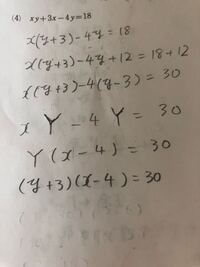 (4) xy+3x-4y=18
x(y+3)-4y = 18
x(y+3)-4y+12 = 18+12
x(y+3)-4(y-3) = 30
x Y - 4 Y = 30
Y (x-4) = 30
(y+3)(x-4) = 30